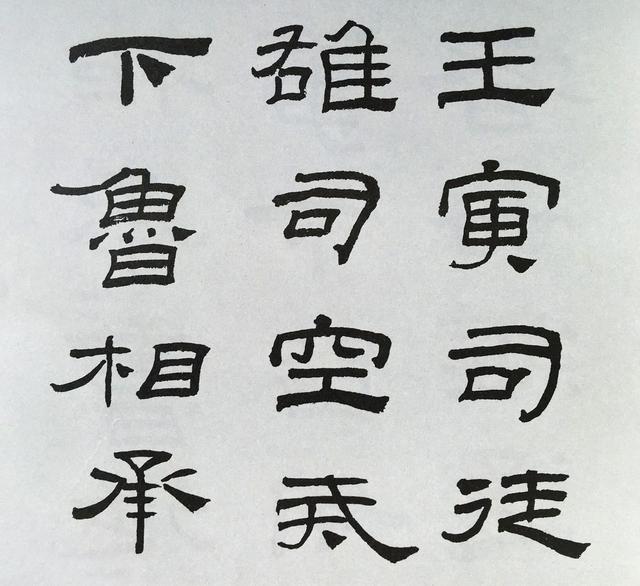 王寅司徒
雄司空戒
下魯相承